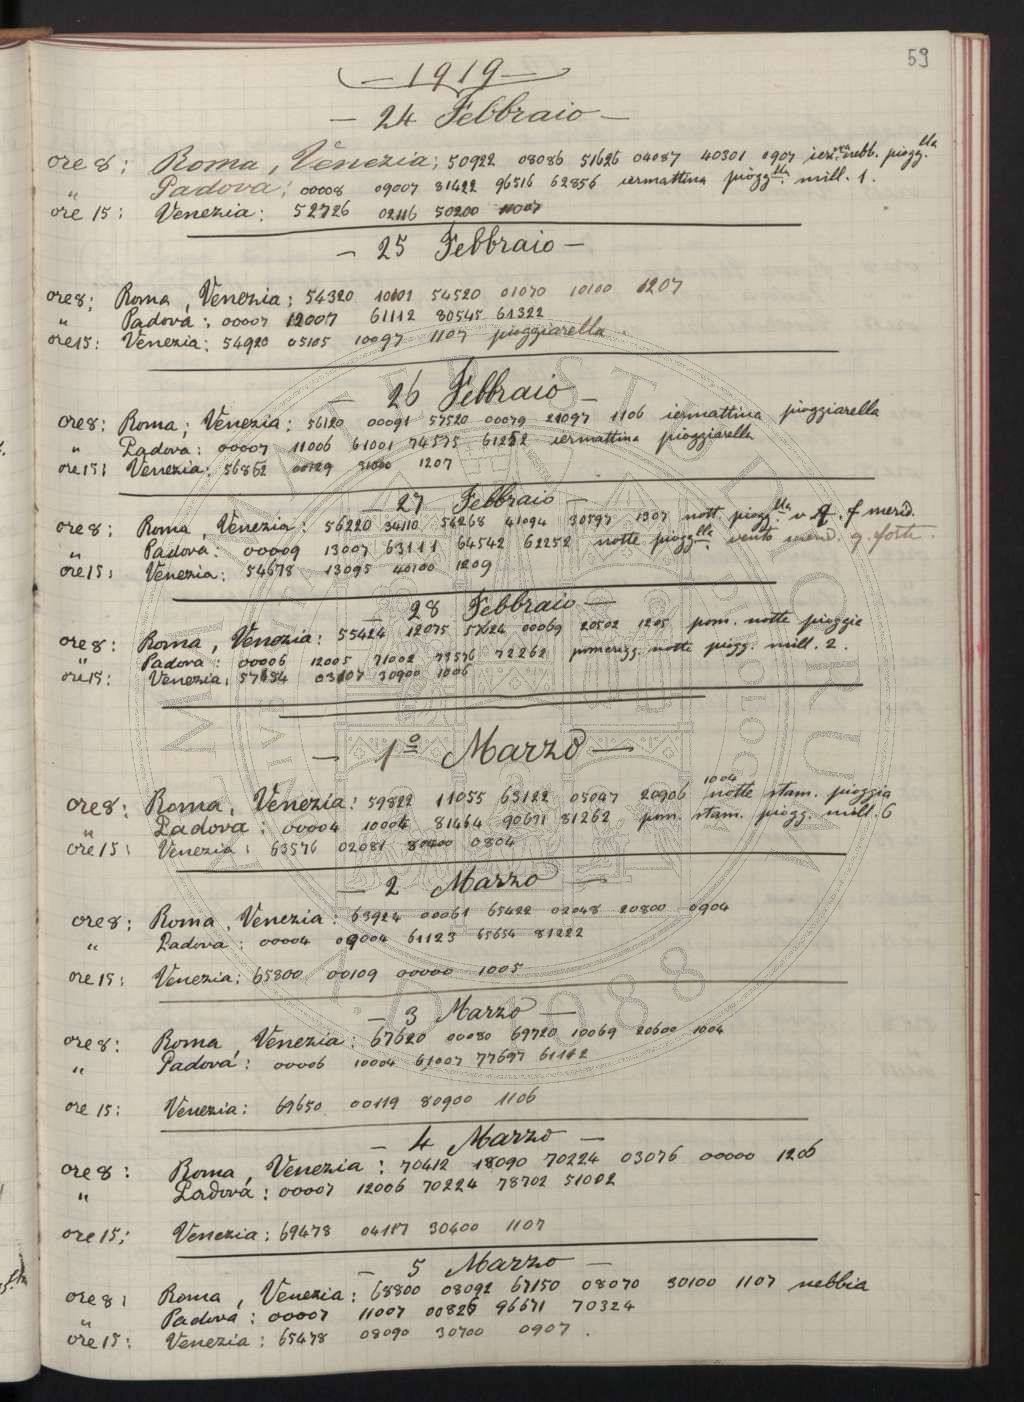 59
— 1919 —
— 24 Febbraio —
ore 8: Roma, Venezia: 50922 08086 51626 04087 40301 0907 nebb. piogg.lla
" Padova: 00008 09007 81422 96516 62856 iermattina piogg.lla mill. 1.
ore 15: Venezia: 52726 02116 50200 11007
— 25 Febbraio —
ore 8: Roma, Venezia: 54320 10101 54520 01070 10100 1207
" Padova: 00007 12007 61112 80545 61322
ore 15: Venezia: 54920 05105 10097 1107 pioggiarella.
— 26 Febbraio —
ore 8: Roma, Venezia: 56120 00091 57520 00079 21097 1106 iermattina pioggiarella
" Padova: 00007 11006 61001 74575 61252 iermattina pioggiarella
ore 15: Venezia: 56862 00129 31000 1207
— 27 Febbraio —
ore 8: Roma, Venezia: 56220 34110 56268 41094 30597 1307 nott. piogg.lla v. f merid.
" Padova: 00009 13007 63111 64542 62252 notte piogg.lla vento merid. q. forte.
ore 15: Venezia: 54678 13095 40100 1209
— 28 Febbraio —
ore 8: Roma, Venezia: 55424 12075 57624 00069 20502 1205 pom. notte pioggia
" Padova: 00006 12005 71002 73576 72262 pomerigg. notte piogg. mill. 2.
ore 15: Venezia: 57654 03107 30900 1006
— 1º Marzo —
1004
ore 8: Roma, Venezia: 59822 11055 63122 05047 20906 notte stam. pioggia
" Padova: 00004 10004 81464 90671 81262 pom. stam. piogg. mill. 6
ore 15: Venezia: 63576 02081 80400 0804
— 2 Marzo —
ore 8: Roma, Venezia: 63924 00061 65422 02048 20800 0904
" Padova: 00004 09004 61123 65654 81222
ore 15: Venezia: 65800 00109 00000 1005
— 3 Marzo —
ore 8: Roma, Venezia: 67620 00080 69720 10069 20600 1004
" Padova: 00006 10004 61007 77697 61112
ore 15: Venezia: 69650 00119 80900 1106
— 4 Marzo —
ore 8: Roma, Venezia: 70412 18090 70224 03076 00000 1206
" Padova: 00007 12006 70224 78702 51002
ore 15: Venezia: 69478 04117 30400 1107
— 5 Marzo —
ore 8: Roma, Venezia: 68800 08092 67150 08070 30100 1107 nebbia
" Padova: 00007 11007 00826 96671 70324
ore 15: Venezia: 65478 08090 30700 0907.